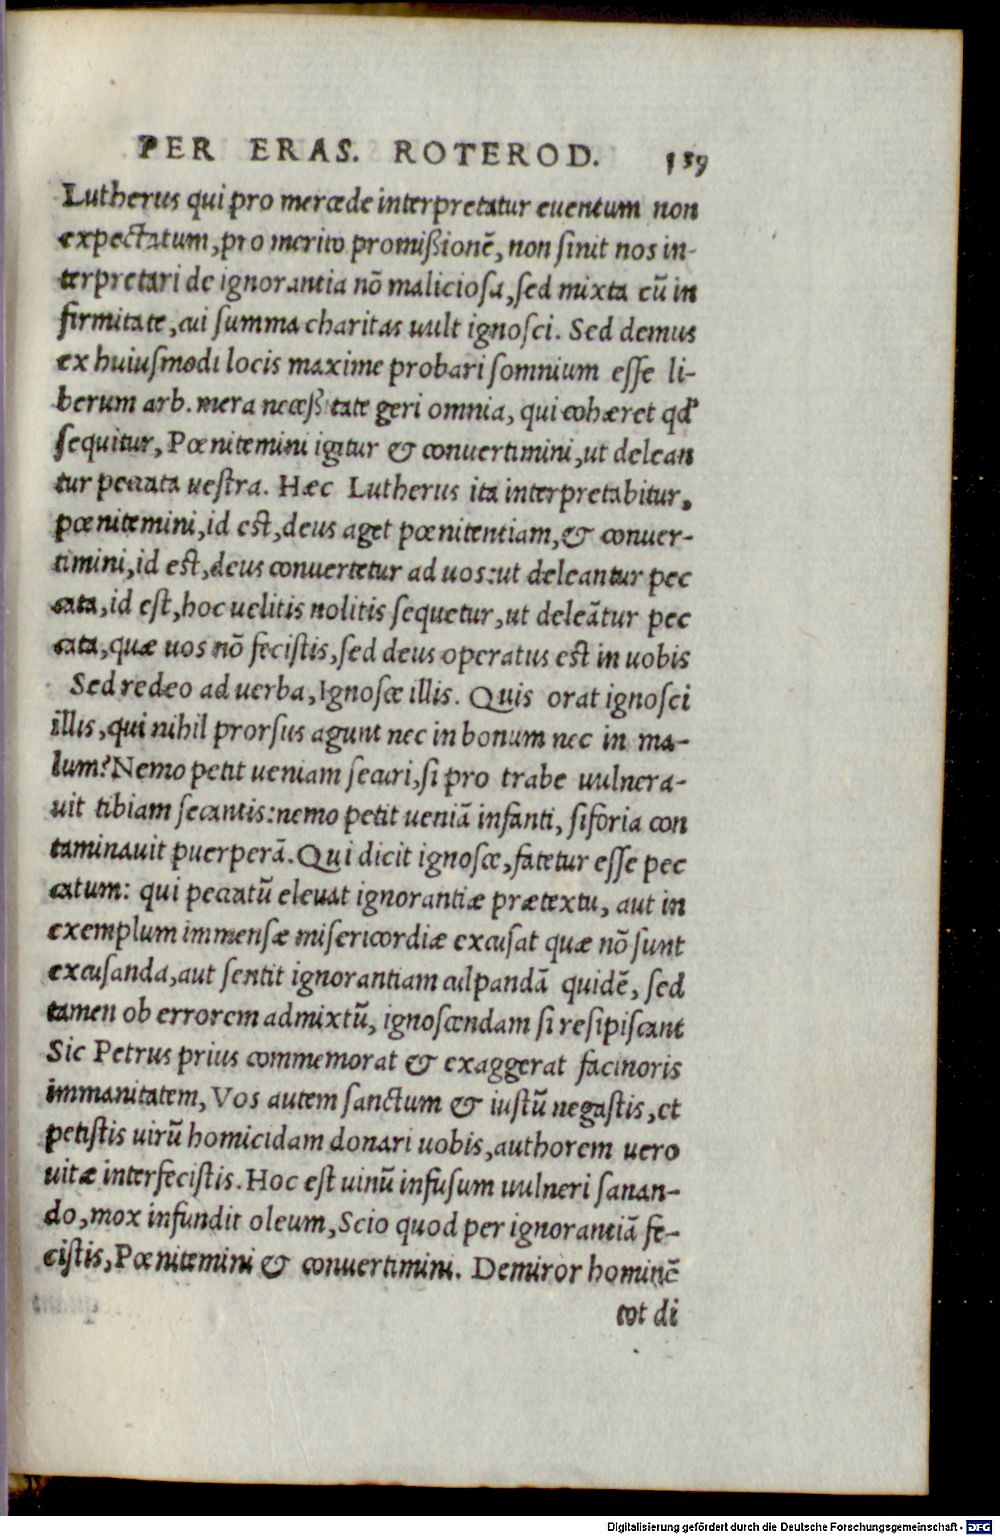 PER ERAS. ROTEROD. 539
Lutherus qui pro mercede interpretatur euentum non
expectatum, pro merito promißionē, non ſinit nos in-
terpretari de ignorantia nō malicioſa, ſed mixta cū in
firmitate, cui ſumma charitas uult ignoſci. Sed demus
ex huiuſmodi locis maxime probari ſomnium eſſe li-
berum arb. mera neceßitate geri omnia, qui cohæret qđ
ſequitur, Pœnitemini igitur & conuertimini, ut delean
tur peccata ueſtra. Hæc Lutherus ita interpretabitur,
pœnitemini, id eſt, deus aget pœnitentiam, & conuer-
timini, id eſt, deus conuertetur ad uos: ut deleantur pec
cata, id eſt, hoc uelitis nolitis ſequetur, ut deleātur pec
cata, quæ uos nō feciſtis, ſed deus operatus eſt in uobis
Sed redeo ad uerba, Ignoſce illis. Quis orat ignoſci
illis, qui nihil prorſus agunt nec in bonum nec in ma-
lum? Nemo petit ueniam ſecuri, ſi pro trabe uulnera-
uit tibiam ſecantis: nemo petit ueniā infanti, ſi foria con
taminauit puerperā. Qui dicit ignoſce, fatetur eſſe pec
catum: qui peccatū eleuat ignorantiæ prætextu, aut in
exemplum immenſæ miſericordiæ excuſat quæ nō ſunt
excuſanda, aut ſentit ignorantiam culpandā quidē, ſed
tamen ob errorem admixtū, ignoſcendam ſi reſipiſcant
Sic Petrus prius commemorat & exaggerat facinoris
immanitatem, Vos autem ſanctum & iuſtū negaſtis, et
petiſtis uirū homicidam donari uobis, authorem uero
uitæ interfeciſtis. Hoc eſt uinū infuſum uulneri ſanan-
do, mox infundit oleum, Scio quod per ignorantiā fe-
ciſtis, Pœnitemini & conuertimini. Demiror hominē
tot di
Digitalisierung gefördert durch die Deutsche Forschungsgemeinschaft - DFG